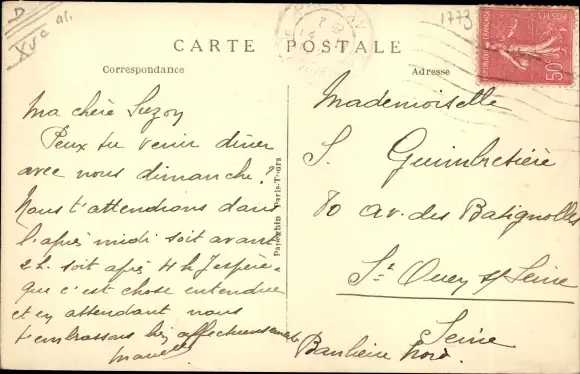 D
XVe ar.
1773
CARTE POSTALE
Correspondance
Adresse
Ma chère Suzon
Peux tu venir dîner
avec nous dimanche?
Nous t'attendrons dans
l'après midi soit avant
2 h. soit après 4 h J'espère
que c'est chose entendue
et en attendant nous
t'embrassons affectueusement
Mademoiselle
S. Guimbretière
80 av. des Batignolles
St Ouen s/ Seine
Seine
Banlieue Nord.
Paris-Tours
POSTES
50c